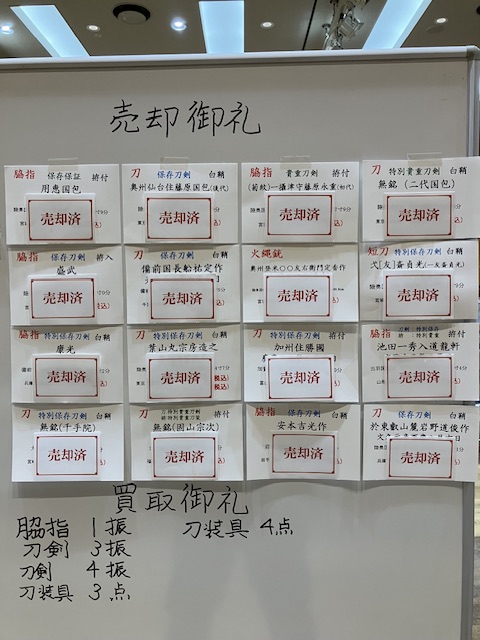 売却御礼
脇指 保存保証 拵付
用恵国包
売却済
刀 保存刀剣 白鞘
奥州仙台住藤原国包(後代)
売却済
脇指 貴重刀剣 拵付
(菊紋)一摂津守藤原永重(初代)
売却済
刀 特別貴重刀剣 白鞘
無銘(二代国包)
売却済
脇指 保存刀剣 拵入
盛武
売却済
刀 保存刀剣 白鞘
備前国長船祐定作
売却済
火縄銃
奥州登米〇〇友右衛門定香作
売却済
短刀 特別保存刀剣 白鞘
売却済
脇指 特別保存刀剣 白鞘
康光
売却済
刀 特別保存刀剣 白鞘
葉山丸宗房造之
売却済
刀 特別保存刀剣 拵付
加州住勝國
売却済
脇指 拵付
池田一秀入道龍軒
売却済
刀 特別保存刀剣 白鞘
無銘(千手院)
売却済
刀 拵付
無銘(固山宗次)
売却済
脇指 保存刀剣 白鞘
安本吉光作
売却済
刀 特別保存刀剣 白鞘
於東叡山麓岩野道俊作
売却済
買取御礼
脇指 1振 刀装具 4点
刀剣 3振
刀剣 4振
刀装具 3点